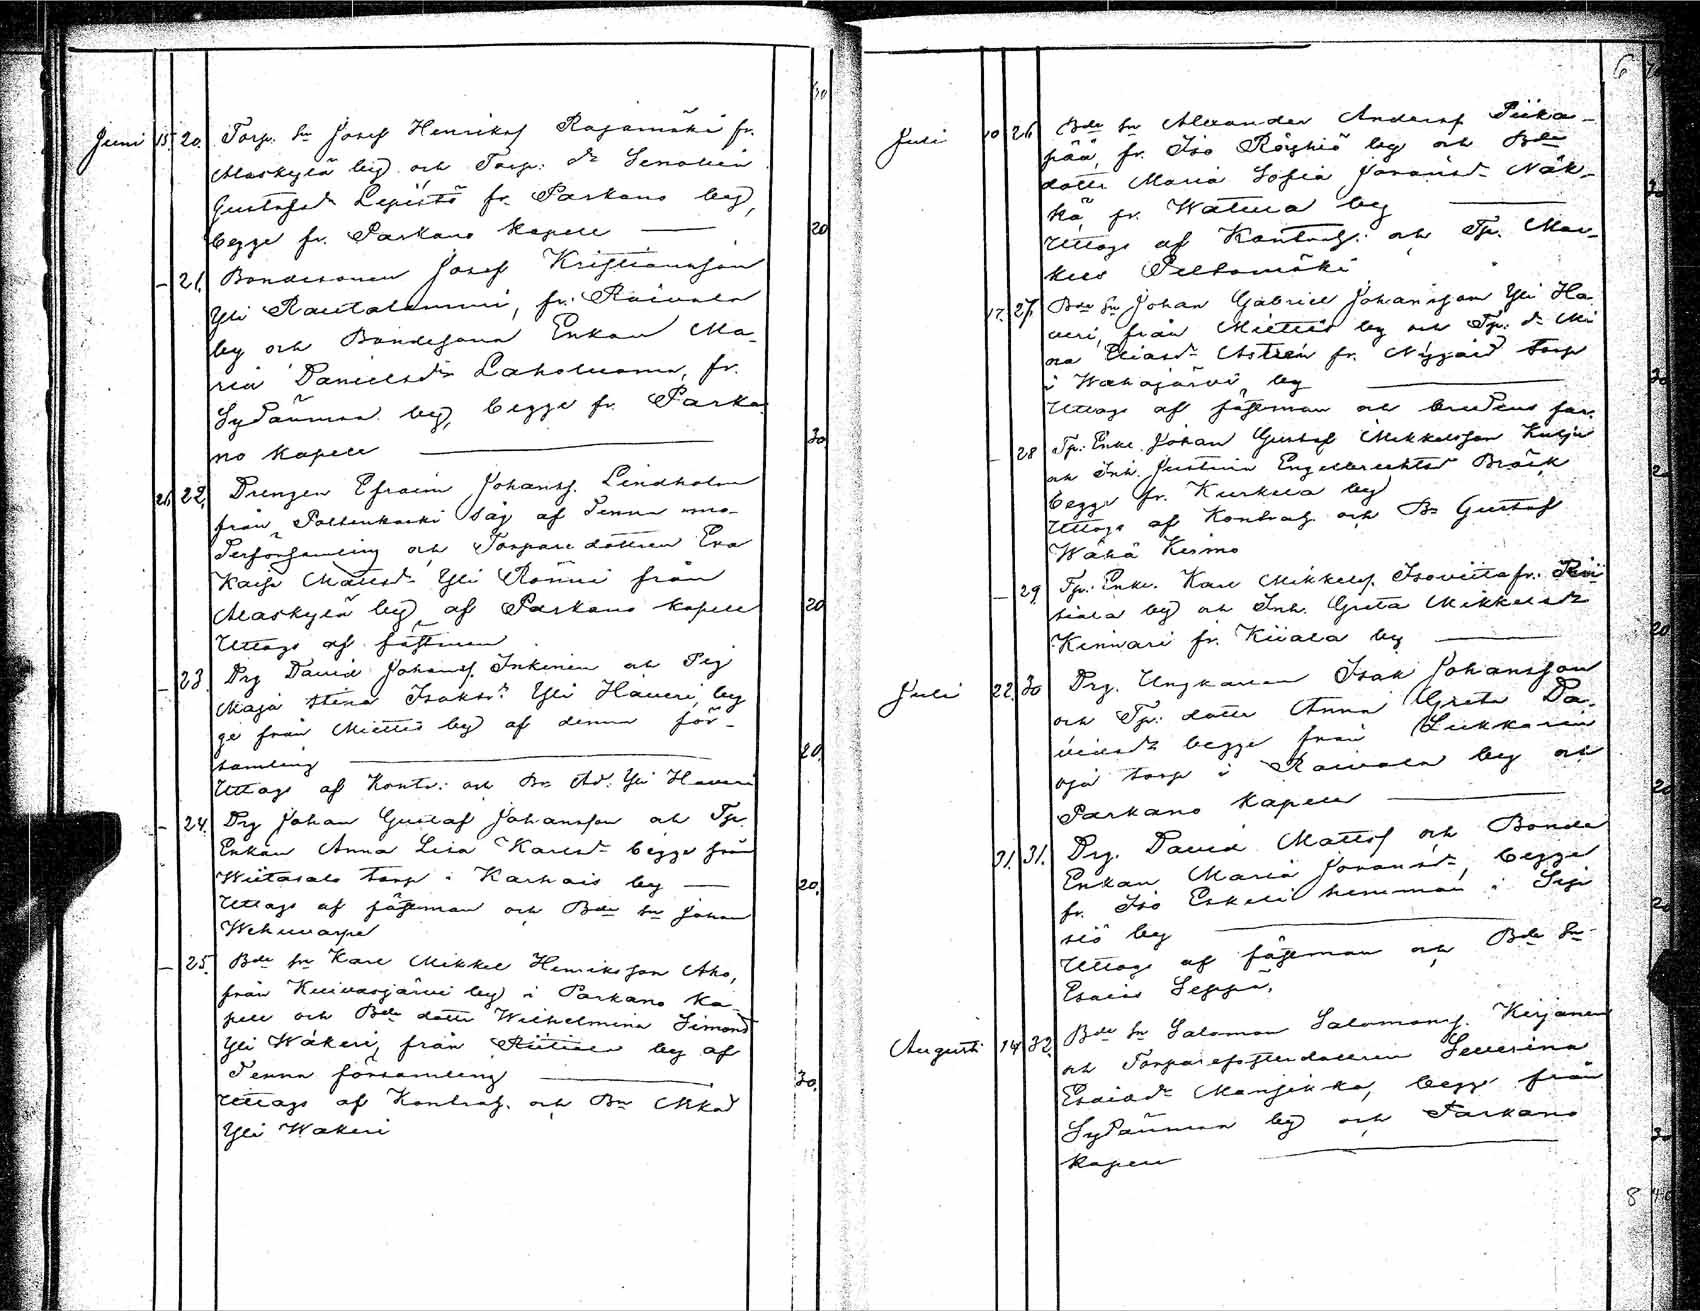 Juni 15. 20. Torp. sn Josef Henriksf Rajamäki fr.
Alaskylä by och Torp. dr Senolin
Gustafsdr Lepistö fr. Parkano by,
begge fr. Parkano Kapell — 20
— 21. Bondesonen Josef Kristiansson
Yli Rautalammi, fr. Raivala
by och Bondesons Enkan Ma-
ria Danielsdr Laholuoma, fr.
Sydänmaa by, begge fr. Parka
no Kapell — 30
26. 22. Drengen Efraim Johansf. Lindholm
från Poltinkoski såg af denna mo-
derförsamling och Torpare dottren Eva
Kaisa Mattsdr Yli Rönni från
Alaskylä by af Parkano Kapell 20
Uttags af fästman
— 23. Drg David Johansf. Inkinen och Pig
Maja Stina Isaksdr Yli Haveri, beg
ge från Miettis by af denna för-
samling — 20.
Uttags af Kontr. och Bn Ad. Yli Haveri
— 24. Drg Johan Gustaf Johansson och Tp.
Enkan Anna Lisa Karlsdr begge från
Wiitasalo torp i Karhois by — 20.
Uttags af fästman och Bde sn Johan
Wehuvarpe
— 25. Bde sn Karl Mikkel Henriksson Aho,
från Kuivasjärvi by i Parkano Ka-
pell och Bde dottr Wilhelmina Simonsd
Yli Wäkeri, från Riitiala by af
denna församling — 30.
Uttags af Kontrah. och Bn Mikael
Yli Wäkeri
6
Juli 10 26 Bde sn Alexander Andersf Piika-
pää, fr. Iso Röyhiö by och Bde
dottr Maria Sofia Johansdr Näk- 20
kä fr. Watula by —
Uttags af Kontrah. och Tp. Mar-
kus Peltomäki
17. 27. Bde sn Johan Gabriel Johansson Yli Ha
veri, från Miettis by och Tp. dr Mi
na Eliasdr Astrén fr. Nygård torp
i Wahojärvi by — 30
Uttags af fästman och brudens far.
— 28 Tp. Enkl. Johan Gustaf Mikkelsson Kulju
och Inh. Justina Engelbrechtsd Bräik 20
begge fr. Kurkela by
Uttags af Kontrah. och Bn Gustaf
Wähä Keimo
— 29. Tp. Enkl. Karl Mikkelsf. Isoviita fr.
siala by och Inh. Greta Mikkelsdr
Kinnari fr. Kiiala by — 20
Juli 22. 30 Drg. Ungkarlen Isak Johansson
och Tp. dottr Anna Greta Da-
vidsdr begge från Liukkarin
oja torp i Raivala by och
Parkano Kapell — 20
31. 31. Drg. David Mattsf och Bonde
Enkan Maria Johansdr, begge
fr. Iso Eskeli hemman i Sip
siö by — 20
Uttags af fästman och Bde sn
Esaias Seppä.
Augusti 14 32. Bde sn Salomon Salomonsf. Kirjanen
och Torparefosterdottren Severina
Esaiadr Mansikka, begge från
Sydänmaa by och Parkano
Kapell — 30
8 40